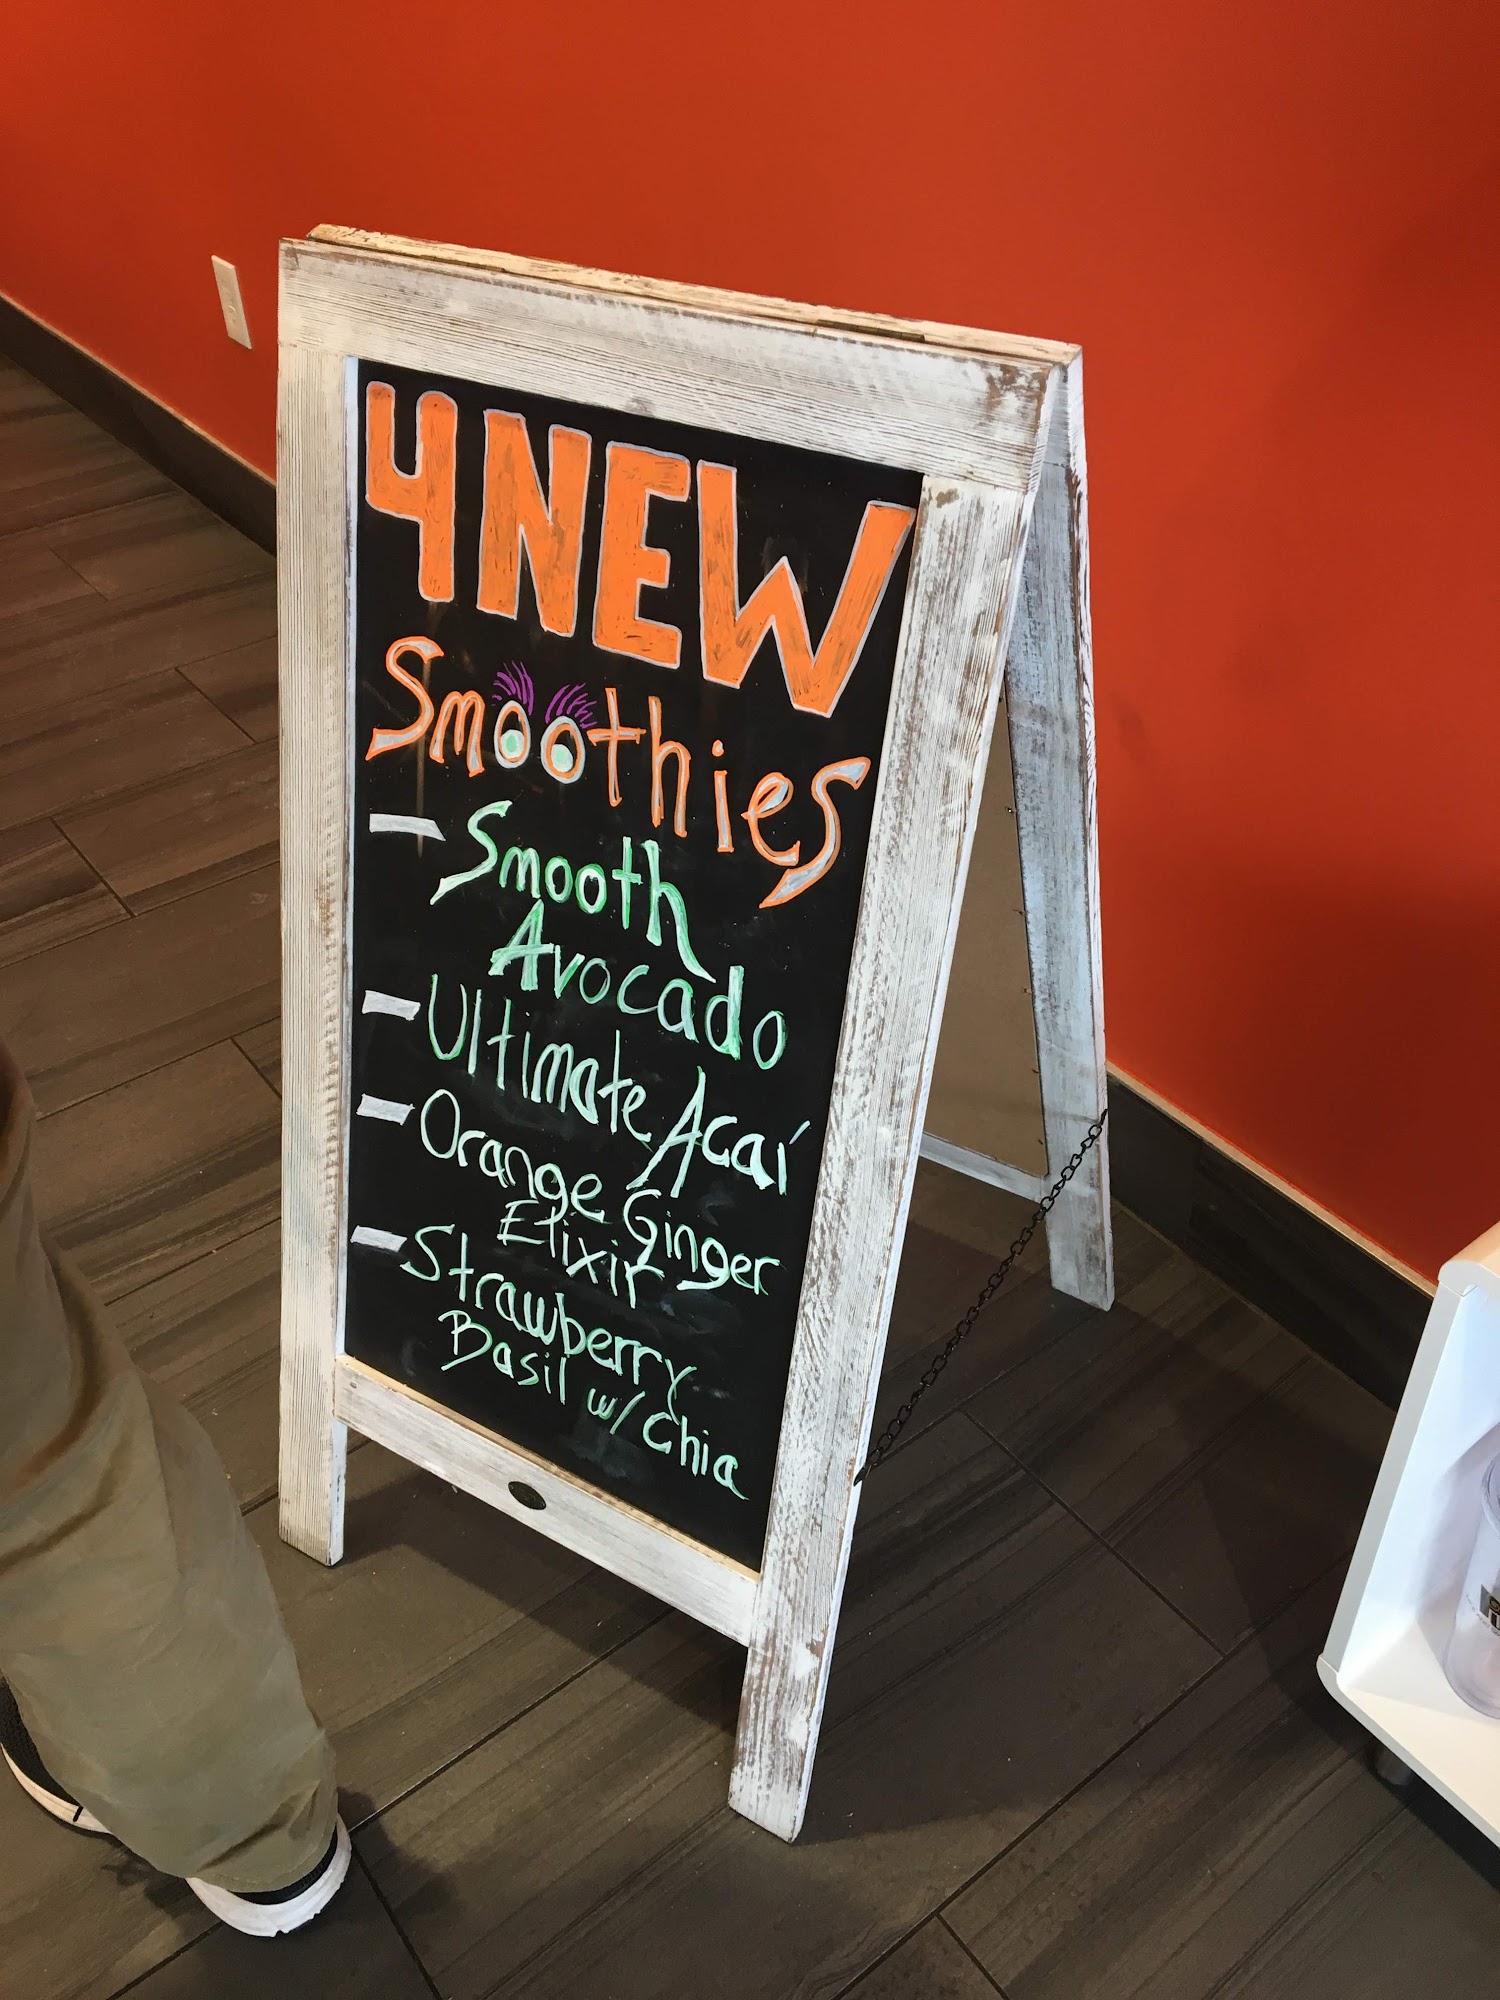 4 NEW
Smoothies
- Smooth
Avocado
- Ultimate Acaí
- Orange Ginger
Elixir
- Strawberry
Basil w/ Chia